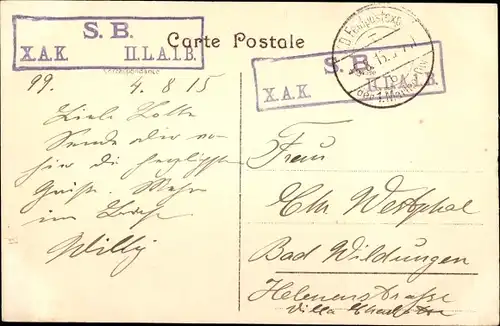 S. B.
X.A.K. II.L.A.I.B.
Carte Postale
Correspondance
S. B.
X.A.K. II.L.A.I.B.
99. 4. 8 15
Liebe Lotte
Sende
hier die herzlichsten
Grüße. Mehr
im Briefe
Willy
Frau
Westphal
Bad Wildungen
Helenenstrasse
Villa